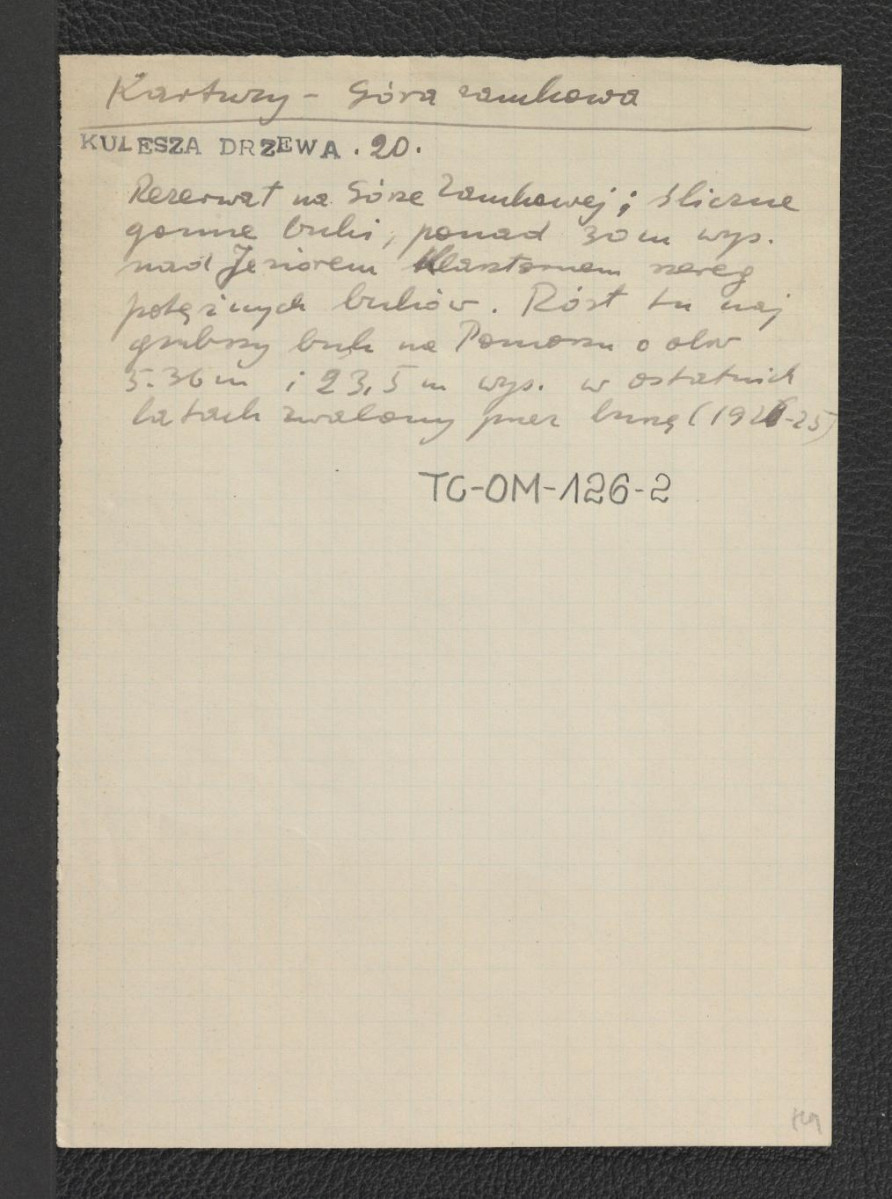 Kartuzy - Góra zamkowa
KULESZA DRZEWA . 20.
Rezerwat na Górze Zamkowej; śliczne
gonne buki, ponad 30 m wys.
nad Jeziorem Klasztornem szereg
potężnych buków. Róst tu naj
grubszy buk na Pomorzu o obw
5.36 m i 23,5 m wys. w ostatnich
latach zwalony przez burzę (192 -25)
TC-OM-126-2